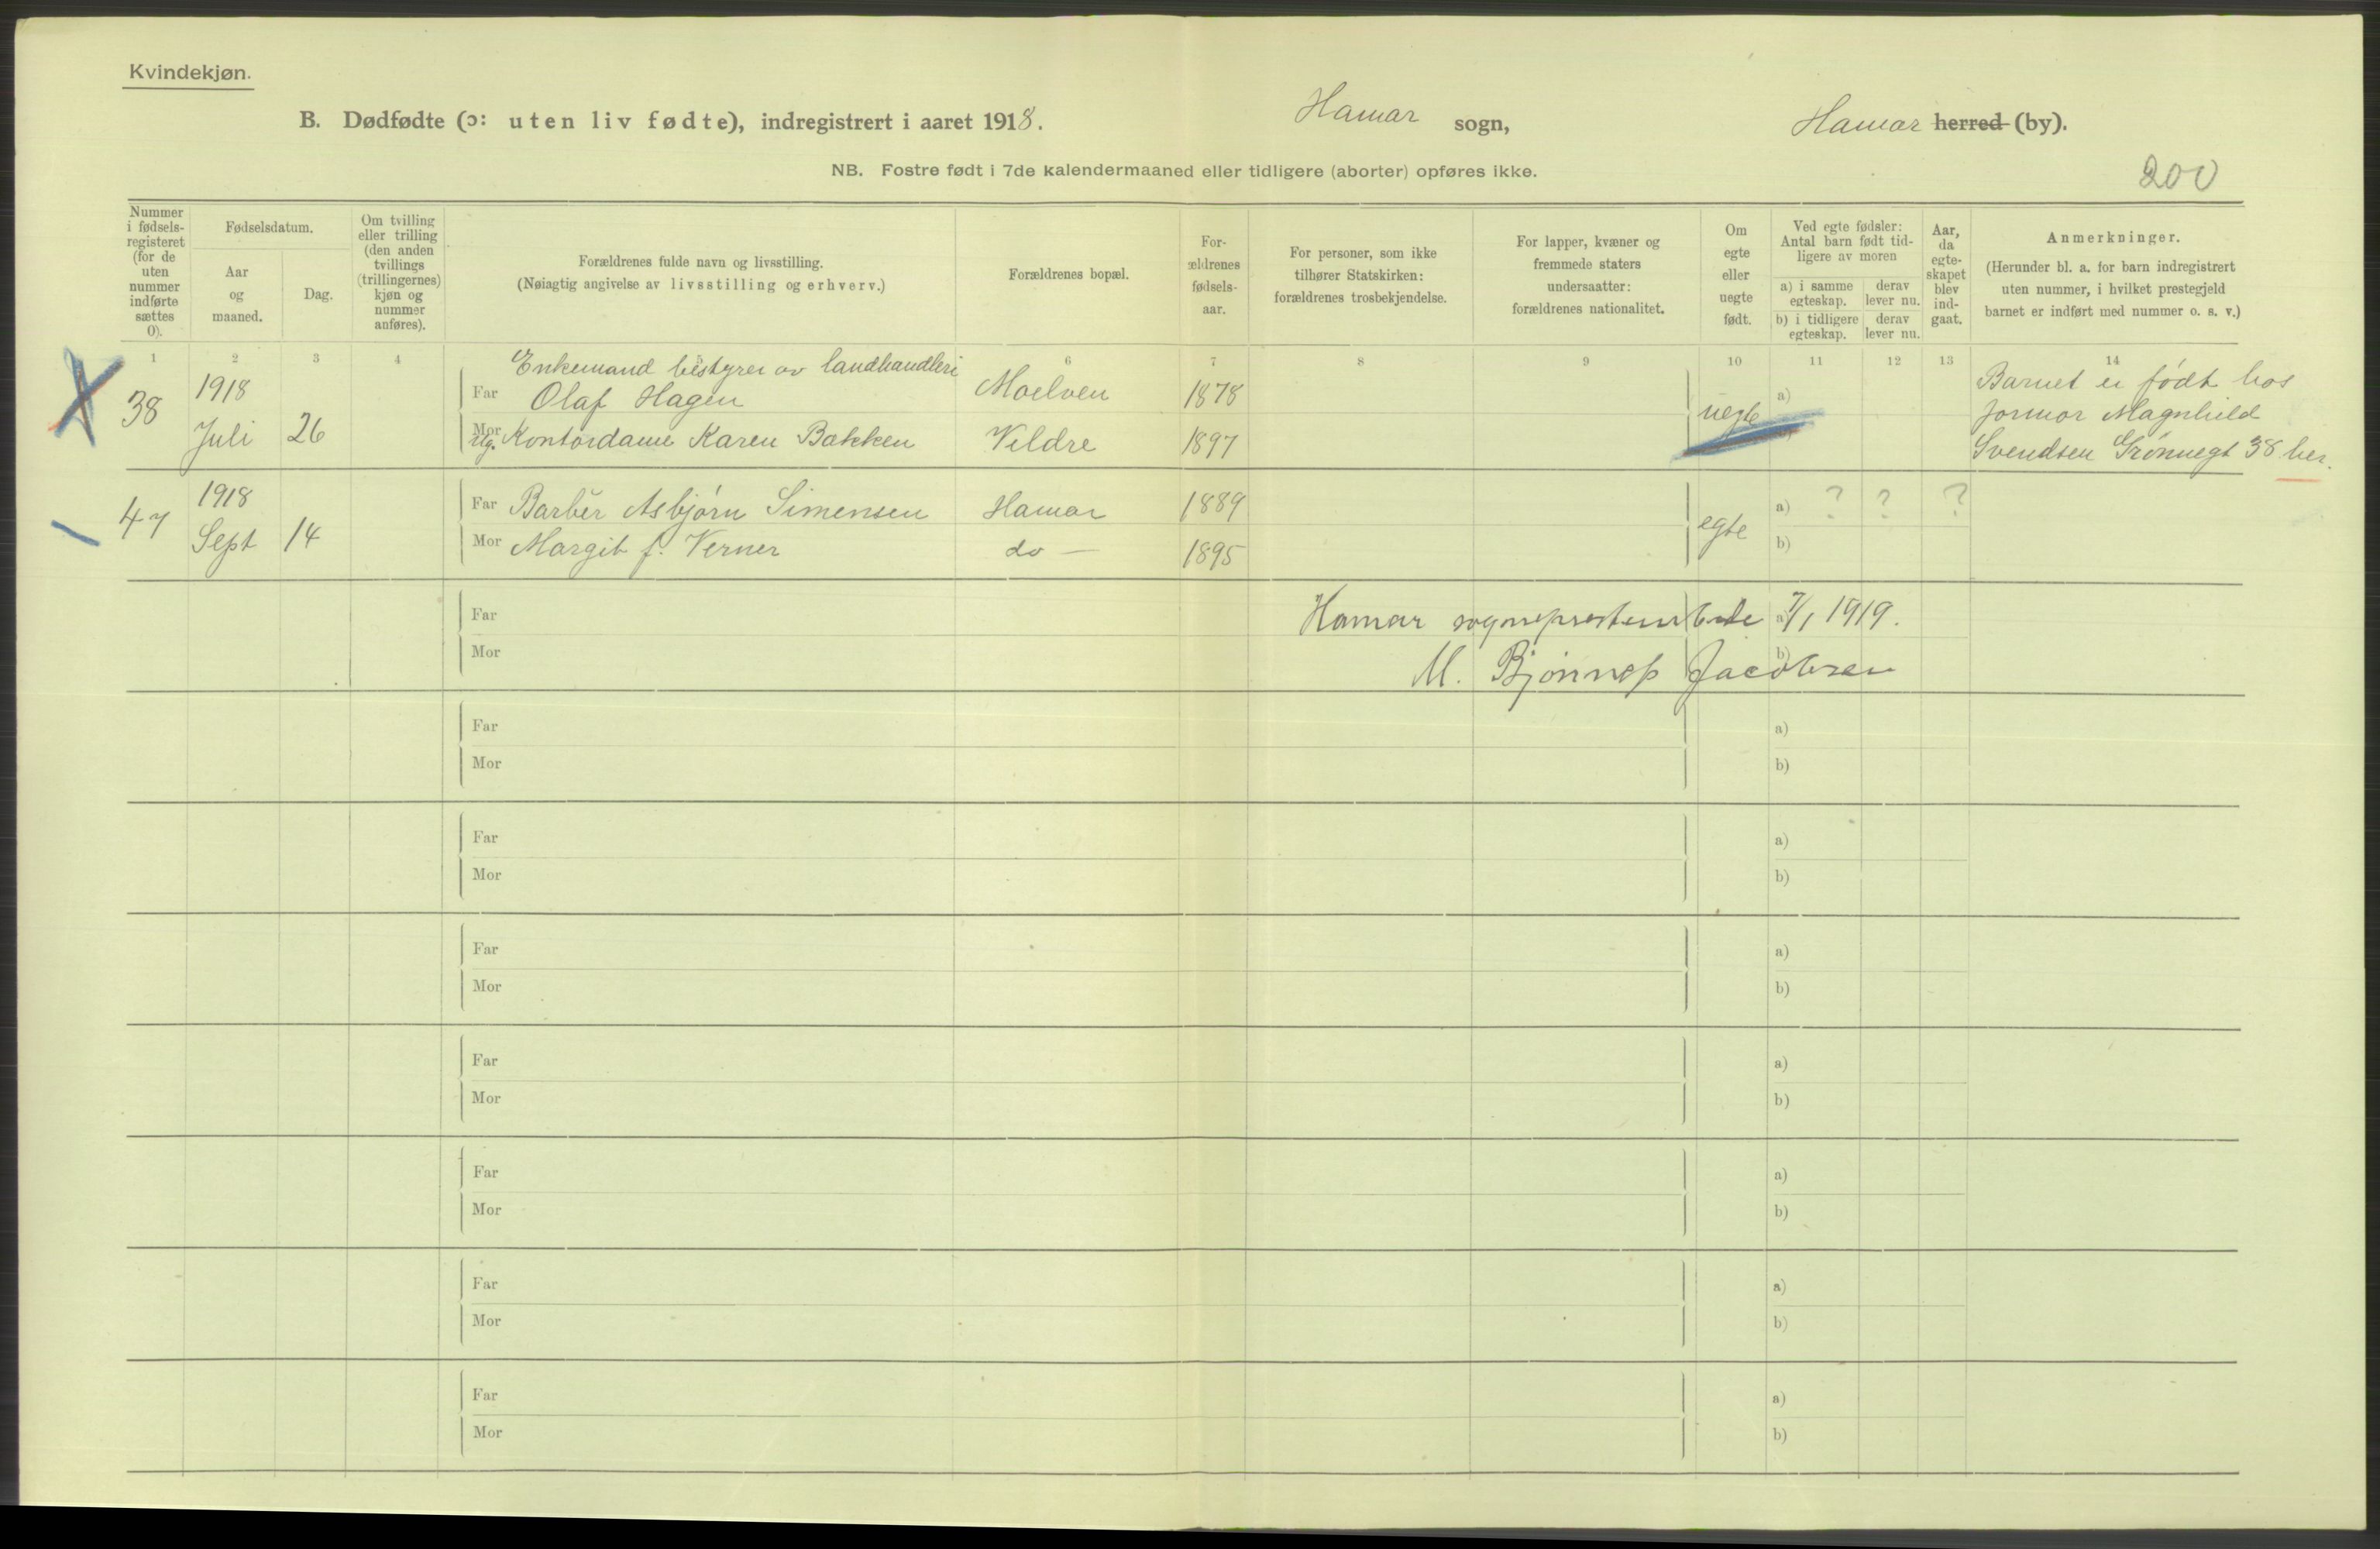 Kvindekjøn.
B. Dødfødte (ɔ: uten liv fødte), indregistrert i aaret 1918. Hamar sogn, Hamar herred (by).
NB. Fostre født i 7de kalendermaaned eller tidligere (aborter) opføres ikke.
200
Nummer i fødsels-registeret (for de uten nummer indførte sættes 0).
Fødselsdatum.
Aar og maaned.
Dag.
Om tvilling eller trilling (den anden tvillings (trillingernes) kjøn og nummer anføres).
Forældrenes fulde navn og livsstilling.
(Nøiagtig angivelse av livsstilling og erhverv.)
Forældrenes bopæl.
For-ældrenes fødsels-aar.
For personer, som ikke tilhører Statskirken: forældrenes trosbekjendelse.
For lapper, kvæner og fremmede staters undersaatter: forældrenes nationalitet.
Om egte eller uegte født.
Ved egte fødsler: Antal barn født tid-ligere av moren
a) i samme egteskap. derav lever nu.
b) i tidligere egteskap. derav lever nu.
Aar, da egte-skapet blev ind-gaat.
Anmerkninger.
(Herunder bl. a. for barn indregistrert uten nummer, i hvilket prestegjeld barnet er indført med nummer o. s. v.)
1 2 3 4 6 7 8 9 10 11 12 13 14
Enkemand bestyrer av landhandleri
38 1918 Far Olaf Hagen Moelven 1878 uegte a) Barnet er født hos
Juli 26 Mor Ug. Kontordame Karen Bakken Veldre 1897 b) jormor Magnhild
Svendsen Grønnegt 38 her.
47 1918 Far Barbér Asbjørn Simensen Hamar 1889 egte a) ? ? ?
Sept 14 Mor Margit f. Verner do — 1895 b)
Far Hamar sogneprestembede a) 7/1 1919.
Mor M. Bjønnes Jacobsen b)
Far a)
Mor b)
Far a)
Mor b)
Far a)
Mor b)
Far a)
Mor b)
Far a)
Mor b)
Far a)
Mor b)
Far a)
Mor b)